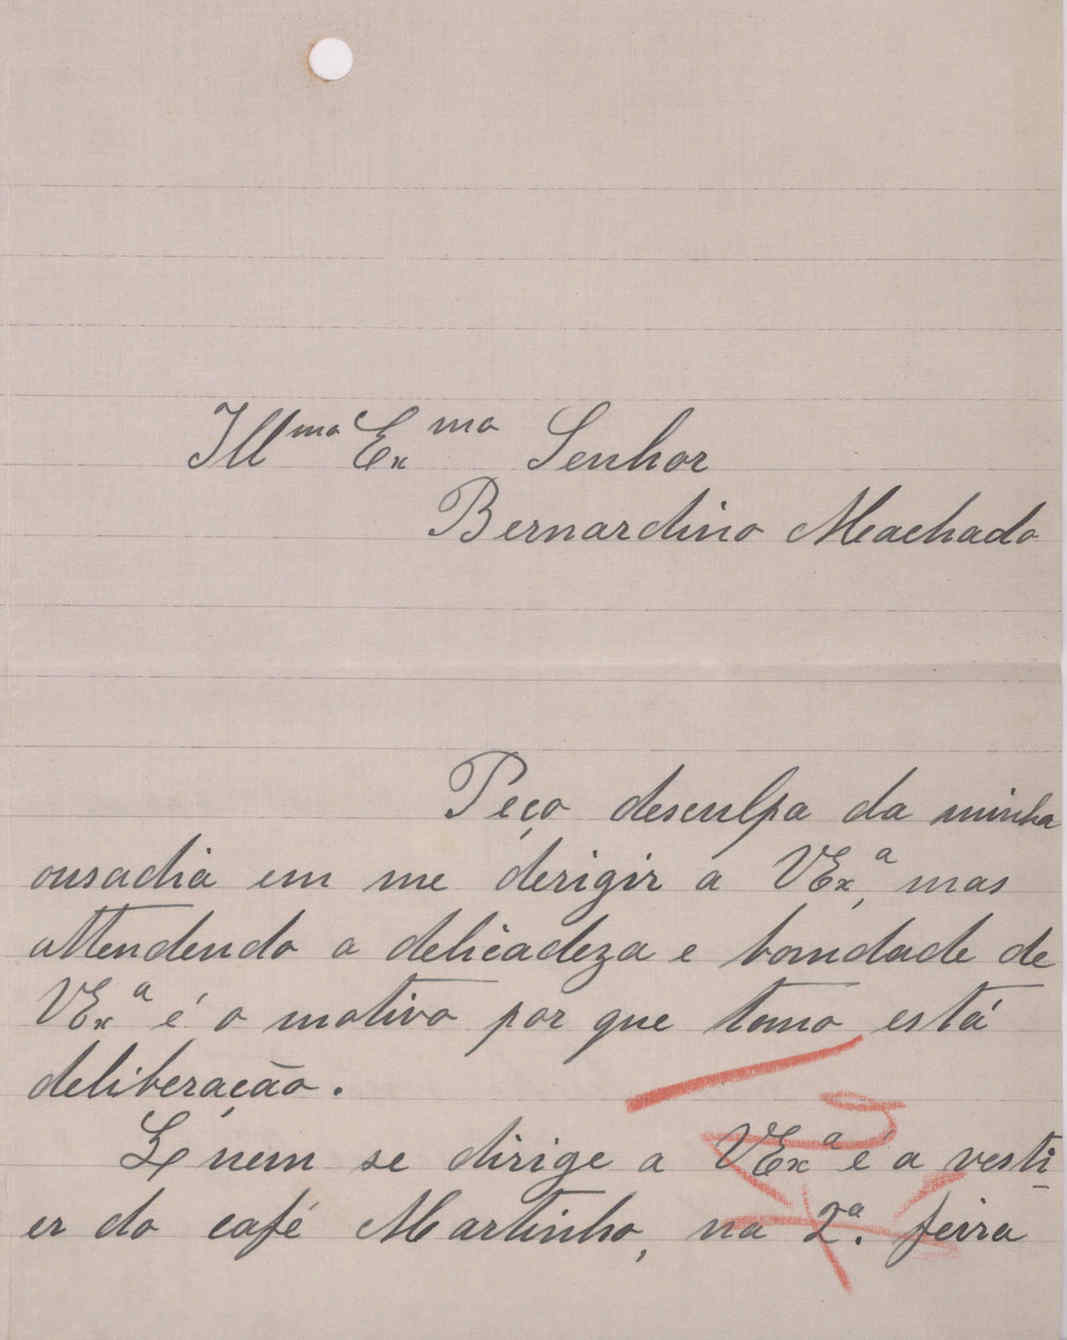 Illmo Exmo Senhor
Bernardino Machado
Peço desculpa da minha
ousadia em me dirigir a VExª, mas
attendendo a delicadeza e bondade de
VExª é o motivo por que tomo está
deliberação.
nem se dirige a VExª é a vesti
er do café Martinho, na 2ª. feira